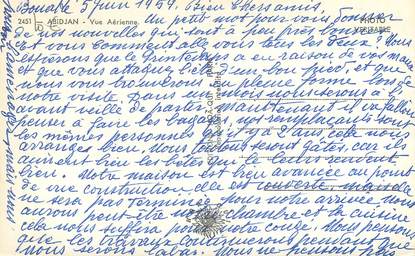 Bouaké 5 juin 1959. Bien chers amis.
Un petit mot pour vous donner
de nos nouvelles qui sont à peu près bonnes
Et vous comment allez vous tous les deux? Nous
espérons que le Printemps a eu raison de vos maux
et que vous attaquez bien d'un bon pied, et que
nous vous trouverons en pleine forme lors de
notre visite. Dans un mois nous serons à l'
avant veille de partir, maintenant il va falloir
penser à faire les bagages, nos remplaçants sont
les mêmes personnes qu'il y a 2 ans cela nous
arranges bien. Nous seront gâtés, car ils
aiment bien les bêtes qui le leurs rendent
bien. Notre maison est bien avancée au point
de vue construction elle est couverte, mais
ne sera pas terminée pour notre arrivée nous
aurons peut être notre chambre et la cuisine
cela nous suffira pour notre congé. Nous pensons
que les travaux continueront pendant que
nous serons labas. Nous ne pensons pas
2451 - ABIDJAN - Vue Aérienne.
PHOTO
VÉRITABLE